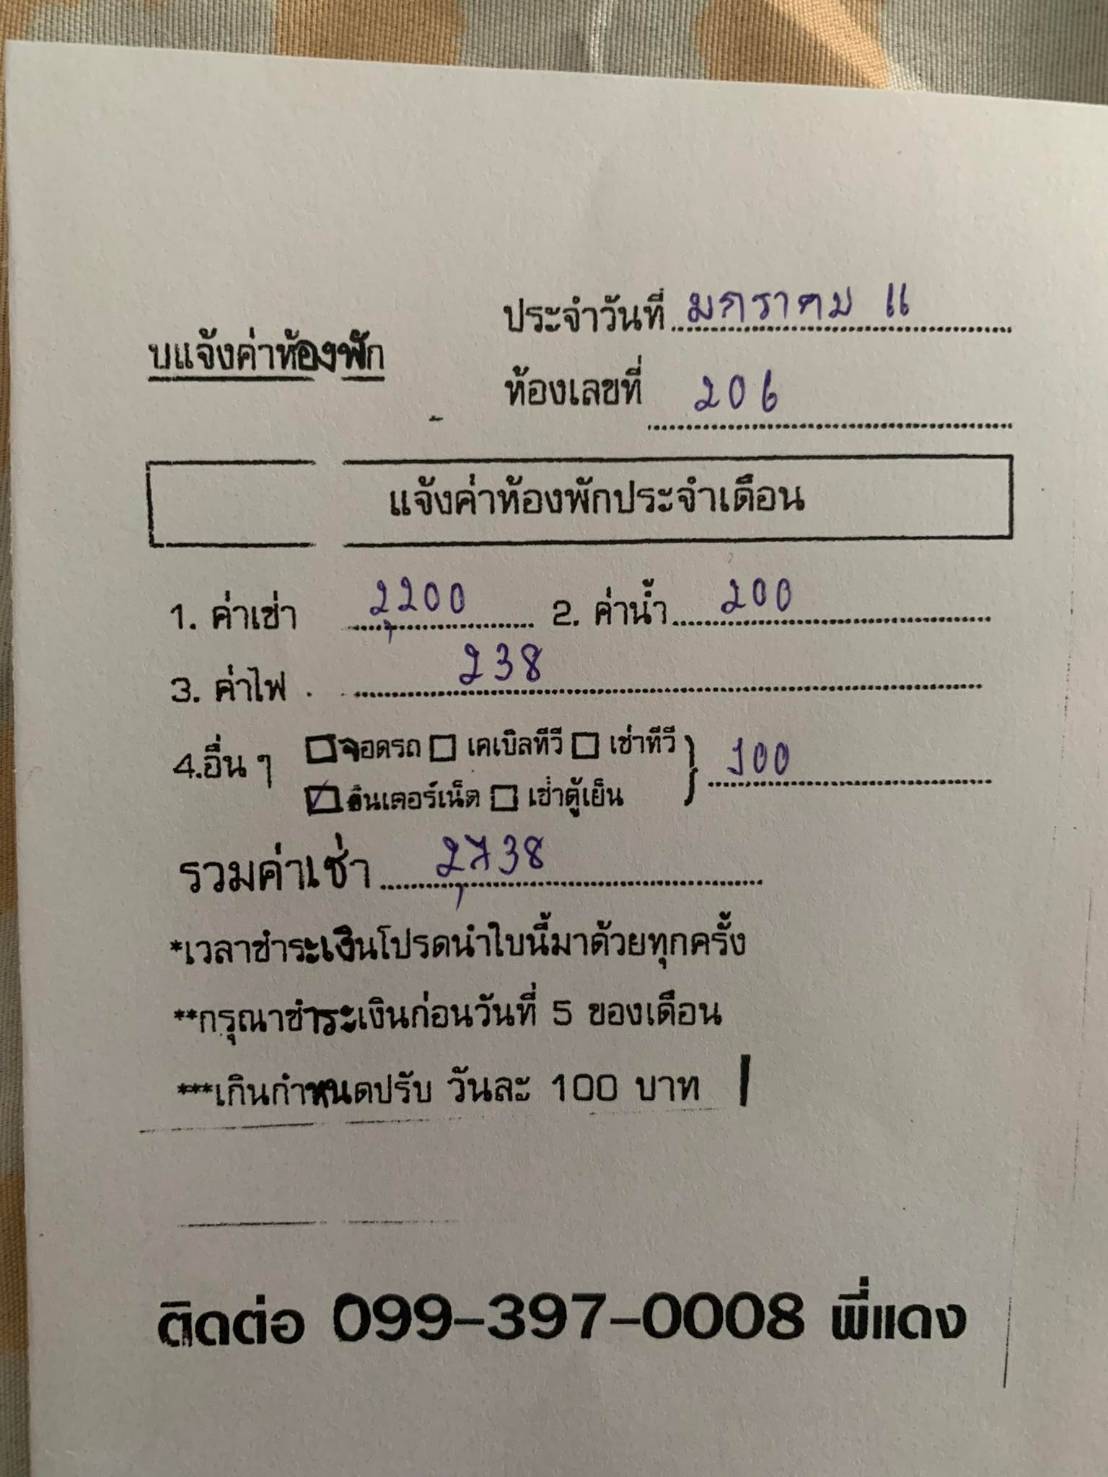 บแจ้งค่าห้องพัก
ประจำวันที่ มกราคม 11
ห้องเลขที่ 206
แจ้งค่าห้องพักประจำเดือน
1. ค่าเช่า 2,200 2. ค่าน้ำ 200
3. ค่าไฟ 238
4.อื่น ๆ จอดรถ เคเบิลทีวี เช่าทีวี
อินเตอร์เน็ต เช่าตู้เย็น 100
รวมค่าเช่า 2,738
*เวลาชำระเงินโปรดนำใบนี้มาด้วยทุกครั้ง
**กรุณาชำระเงินก่อนวันที่ 5 ของเดือน
***เกินกำหนดปรับ วันละ 100 บาท
ติดต่อ 099-397-0008 พี่แดง